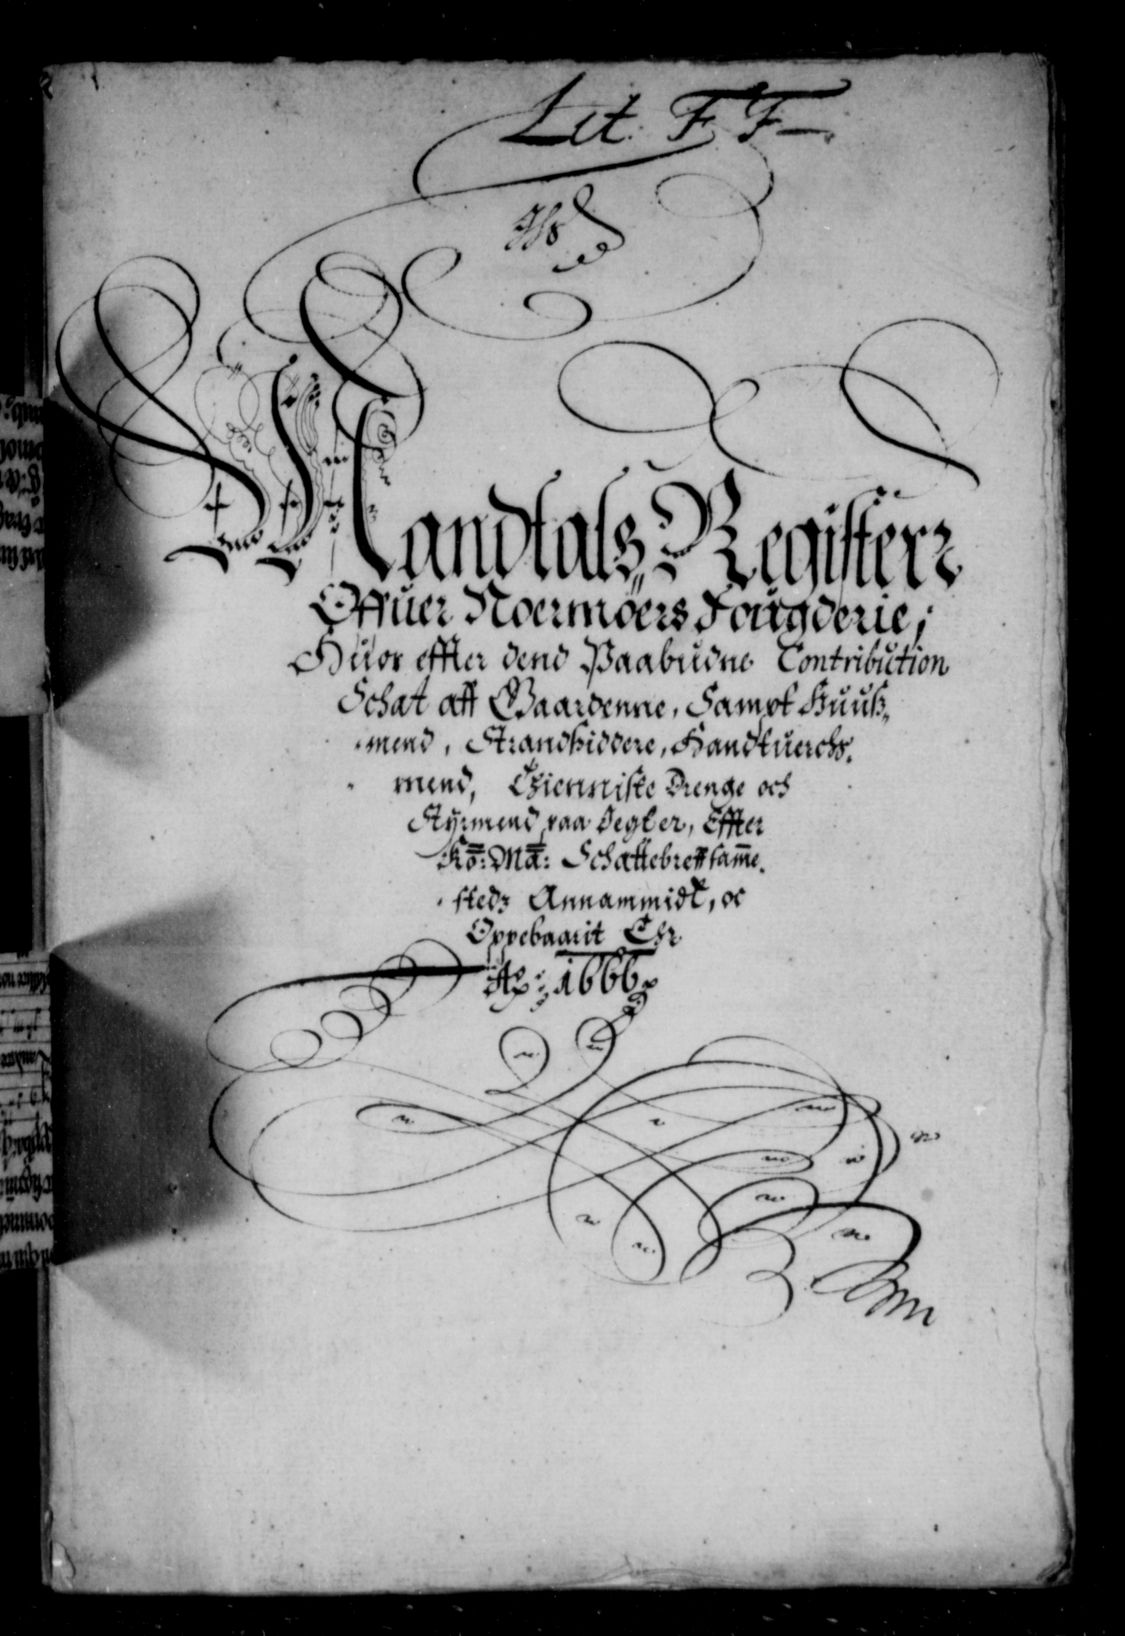 Lit. F F
Mandtals Register
Offuer Noermöers Fougderie;
Huor effter dend Paabudne Contribution
Schat aff Gaardenne, Sampt Huuß„
mend, Strandsiddere, Handtuerchs„
mend, Thienniste Drenge och
Styrmend paa Jegter, Effter
Ko: Ma: Schattebreff same„
steds Annammidt, oc
Oppebaarit Ehr
Ao: 1666